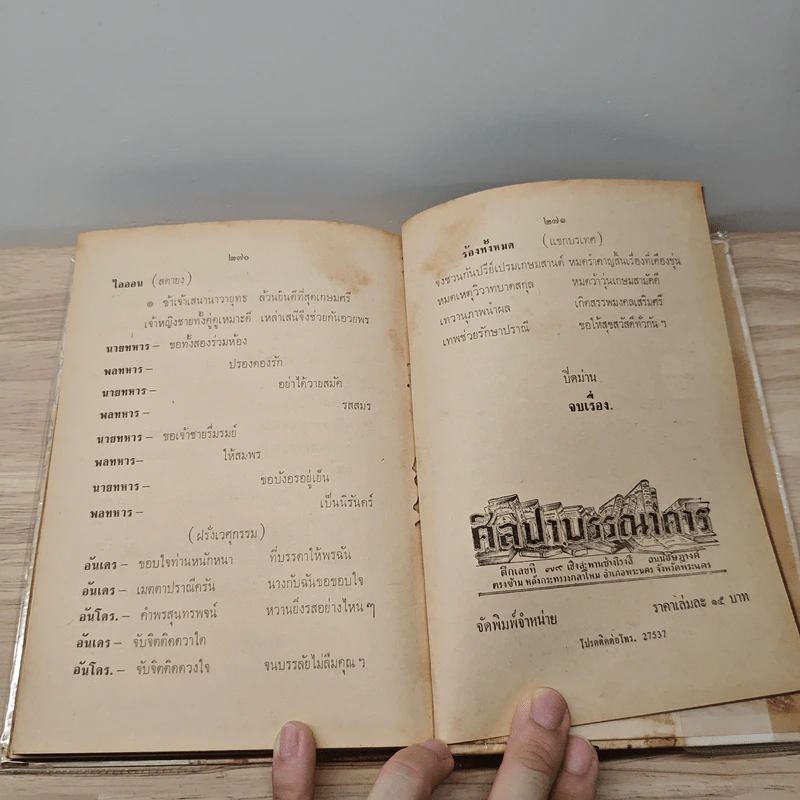 ๒๗๐
ไลออน (สดายง)
๏ ข้าเจ้าเสนานาวายุทธ ล้วนยินดีที่สุดเกษมศรี
เจ้าหญิงชายทั้งคู่ดูเหมาะดี เหล่าเสนีจึงช่วยกันอวยพร
นายทหาร — ขอทั้งสองร่วมห้อง
พลทหาร — ปรองดองรัก
นายทหาร — อย่าได้วายสมัค
พลทหาร — รสสมร
นายทหาร — ขอเจ้าชายรื่มรมย์
พลทหาร — ให้สมพร
นายทหาร — ขอบังอรอยู่เย็น
พลทหาร — เป็นนิรันดร์
(ฝรั่งเวศุกรรม)
อันเดร — ขอบใจท่านหนักหนา ที่บรรดาให้พรฉัน
อันเดร — เมตตาปราณีครัน นางกับฉันขอขอบใจ
อันโดร. — คำพรสุนทรพจน์ หวานยิ่งรสอย่างไหน ๆ
อันเดร — จับจิตติดตวาใด
อันโดร. — จับจิตติดดวงใจ จนบรรลัยไม่ลืมคุณ ฯ
๒๗๑
ร้องทั้งหมด (แขกบรเทศ)
จงชวนกันปรีย์เปรมเกษมสานต์ หมดรำคาญสิ้นเรื่องที่เคืองขุ่น
หมดเหตุวิวาทบาดสกุล หมดว้าวุ่นเกษมสามัคคี
เทวานุภาพนำผล เกิดสรรพมงคลเสริมศรี
เทพช่วยรักษาปราณี ขอให้สุขสวัสดีทั่วกัน ฯ
ปิดม่าน
จบเรื่อง.
ศิลปาบรรณาคาร
ตึกเลขที่ ๗๗๙ เชิงสะพานช้างโรงสี ถนนอัษฎางค์
ตรงข้าม หลังกระทรวงกลาโหม อำเภอพระนคร จังหวัดพระนคร
จัดพิมพ์จำหน่าย ราคาเล่มละ ๑๕ บาท
โปรดติดต่อโทร. 27537